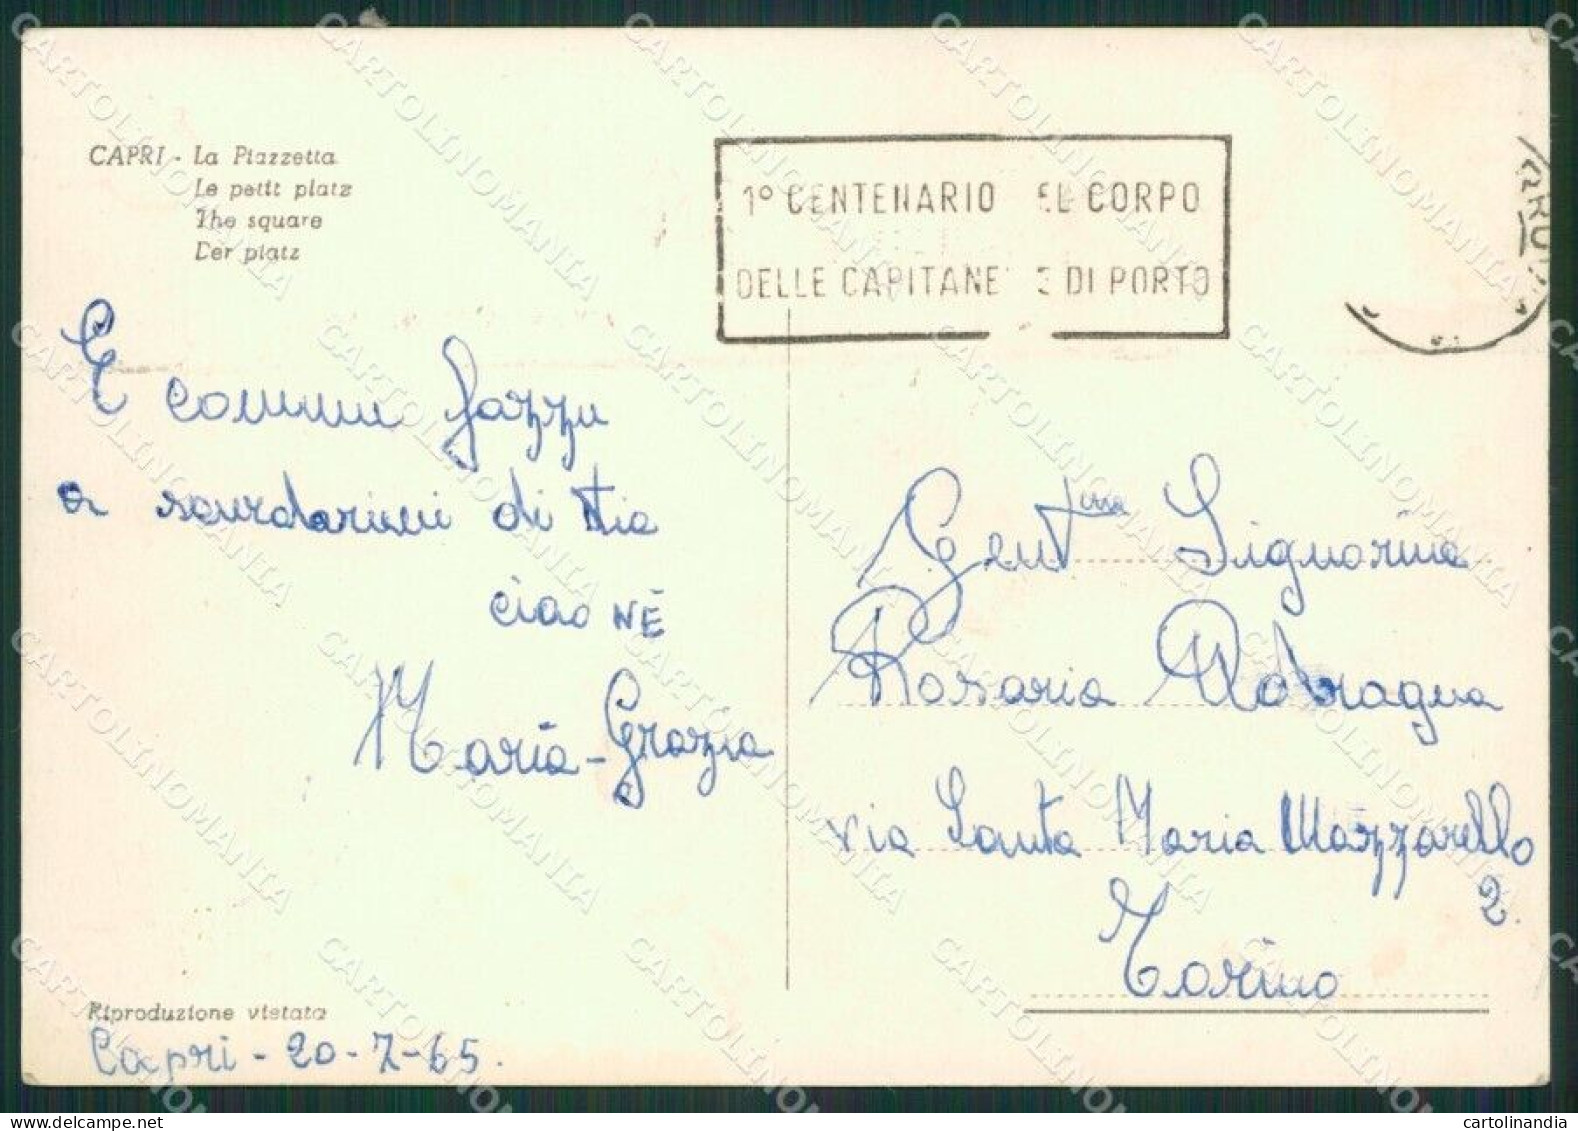 CAPRI - La Piazzetta
Le petit platz
The square
Der platz
1° CENTENARIO EL CORPO
DELLE CAPITANE E DI PORTO
E commu fazzu
a scurdarimi di tia
ciao NÈ
Maria-Grazia
Gent.ma Signorina
Rosaria Adragna
via Santa Maria Mazzarello
2.
Torino
Riproduzione vietata
Capri - 20-7-65.
CARTOLINOMANIA
cartolinandia